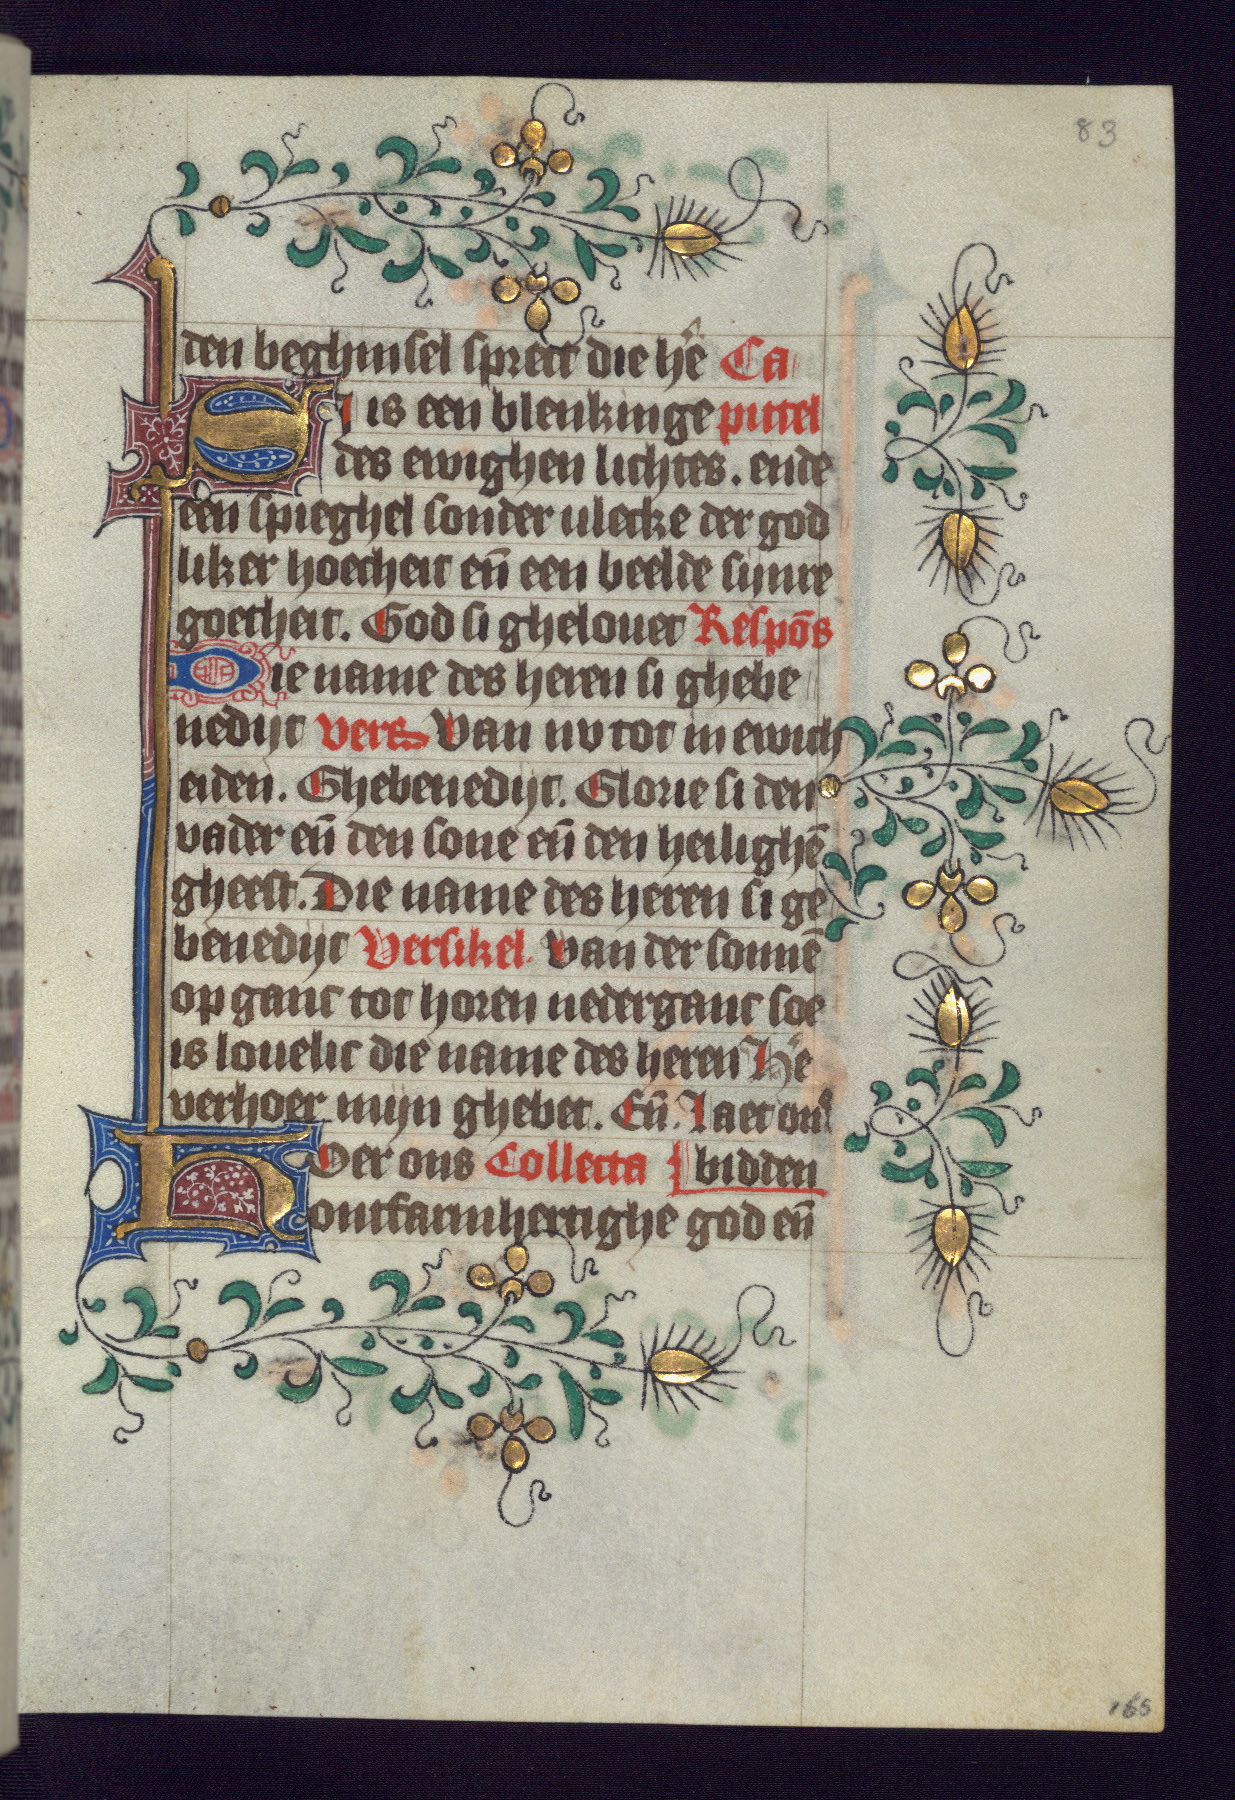 83
den beghinsel sprect die hē Ca
Si is een blenkinge pittel
des ewighen lichtes. ende
een spieghel sonder vlecke der god
liker hoecheit eñ een beelde sijnre
goetheit. God si ghelouet Respōs
Die name des heren si ghebe
nedijt vers Van nv tot in ewich
eiden. Ghebenedijt. Glorie si den
vader eñ den sone eñ den heilighē
gheest. Die name des heren si ge
benedijt Versikel. van der sonnē
op ganc tot horen nederganc soe
is louelic die name des heren He
verhoer mijn ghebet. Eñ. laet om
Oer ons Collecta bidden
H ontfarmhertighe god eñ
165